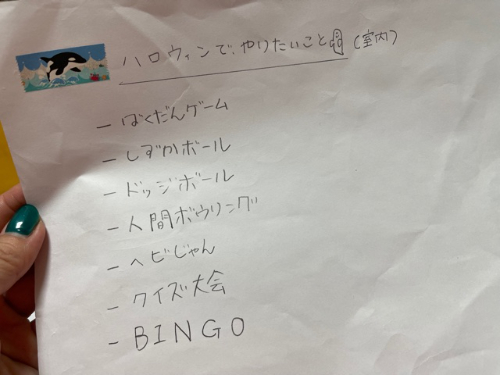 ハロウィンで、やりたいこと(室内)
- ばくだんゲーム
- しずかボール
- ドッジボール
- 人間ボウリング
- ヘビじゃん
- クイズ大会
- BINGO